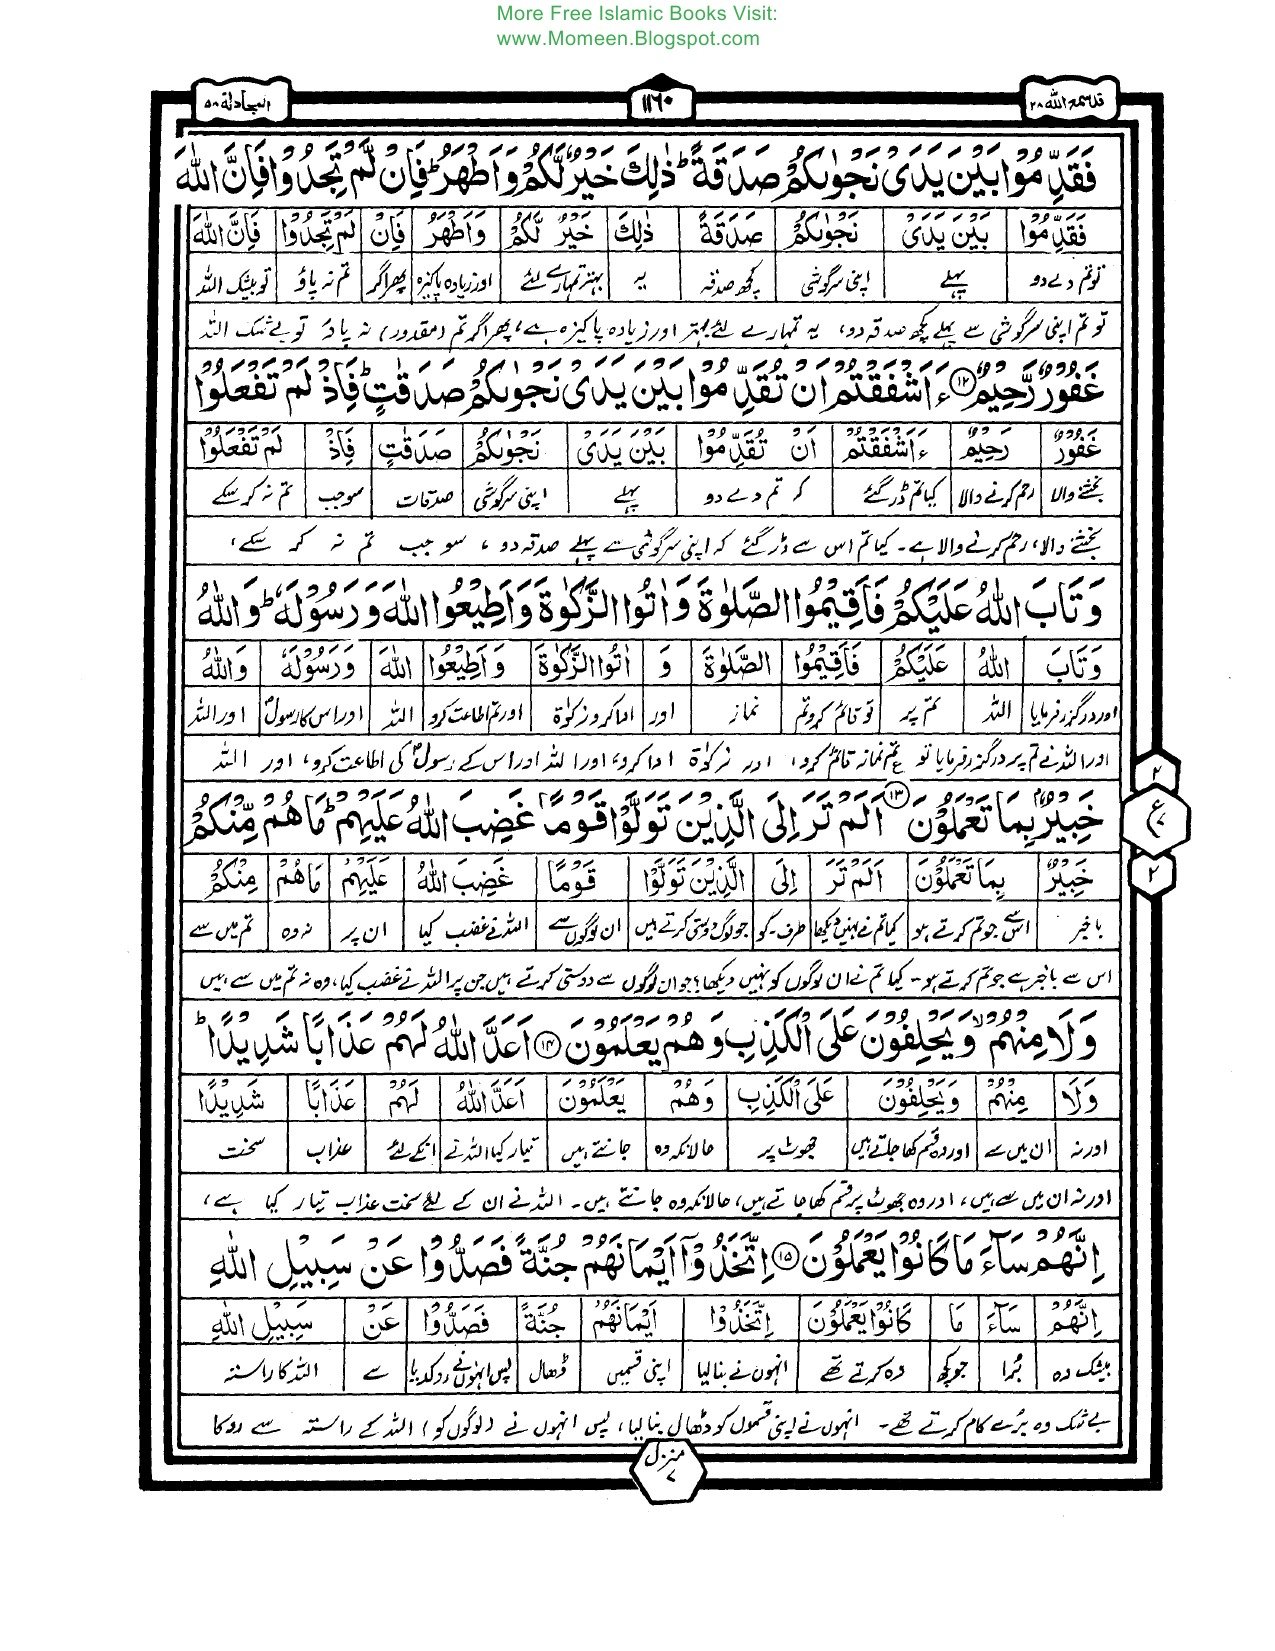 More Free Islamic Books Visit:
www.Momeen.Blogspot.com
قد سمع الله ۲۸ ۱۱۶۰ المجادلة ۵۸
فَقَدِّمُوْا بَيْنَ يَدَيْ نَجْوٰىكُمْ صَدَقَةً ؕ ذٰلِكَ خَيْرٌ لَّكُمْ وَاَطْهَرُ ؕ فَاِنْ لَّمْ تَجِدُوْا فَاِنَّ اللّٰهَ
فَقَدِّمُوْا بَيْنَ يَدَيْ نَجْوٰىكُمْ صَدَقَةً ذٰلِكَ خَيْرٌ لَّكُمْ وَاَطْهَرُ فَاِنْ لَمْ تَجِدُوْا فَاِنَّ اللّٰهَ
تو تم دے دو پہلے اپنی سرگوشی کچھ صدقہ یہ بہتر تمہارے لئے اور زیادہ پاکیزہ پھر اگر تم نہ پاؤ تو بیشک اللہ
تو تم اپنی سرگوشی سے پہلے کچھ صدقہ دو، یہ تمہارے لئے بہتر اور زیادہ پاکیزہ ہے، پھر اگر تم (مقدور) نہ پاؤ تو بے شک اللہ
غَفُوْرٌ رَّحِيْمٌ ۱۲ ءَاَشْفَقْتُمْ اَنْ تُقَدِّمُوْا بَيْنَ يَدَيْ نَجْوٰىكُمْ صَدَقٰتٍ ؕ فَاِذْ لَمْ تَفْعَلُوْا
غَفُوْرٌ رَحِيْمٌ ءَاَشْفَقْتُمْ اَنْ تُقَدِّمُوْا بَيْنَ يَدَيْ نَجْوٰىكُمْ صَدَقٰتٍ فَاِذْ لَمْ تَفْعَلُوْا
بخشنے والا رحم کرنے والا کیا تم ڈر گئے کہ تم دے دو پہلے اپنی سرگوشی صدقات سو جب تم نہ کر سکے
بخشنے والا، رحم کرنے والا ہے۔ کیا تم اس سے ڈر گئے کہ اپنی سرگوشی سے پہلے صدقہ دو، سو جب تم نہ کر سکے،
وَتَابَ اللّٰهُ عَلَيْكُمْ فَاَقِيْمُوا الصَّلٰوةَ وَاٰتُوا الزَّكٰوةَ وَاَطِيْعُوا اللّٰهَ وَرَسُوْلَهٗ ؕ وَاللّٰهُ
وَتَابَ اللّٰهُ عَلَيْكُمْ فَاَقِيْمُوا الصَّلٰوةَ وَ اٰتُوا الزَّكٰوةَ وَاَطِيْعُوا اللّٰهَ وَرَسُوْلَهٗ وَاللّٰهُ
اور درگزر فرمایا اللہ تم پر تو قائم کرو تم نماز اور ادا کرو زکوٰة اور تم اطاعت کرو اللہ اور اس کا رسولؐ اور اللہ
اور اللہ نے تم پر درگزر فرمایا تو تم نماز قائم کرو، اور زکوٰة ادا کرو، اور اللہ اور اس کے رسولؐ کی اطاعت کرو، اور اللہ
۲
خَبِيْرٌۢ بِمَا تَعْمَلُوْنَ ۱۳ اَلَمْ تَرَ اِلَى الَّذِيْنَ تَوَلَّوْا قَوْمًا غَضِبَ اللّٰهُ عَلَيْهِمْ ؕ مَا هُمْ مِّنْكُمْ
ع ۷
۲
خَبِيْرٌ بِمَا تَعْمَلُوْنَ اَلَمْ تَرَ اِلَى الَّذِيْنَ تَوَلَّوْا قَوْمًا غَضِبَ اللّٰهُ عَلَيْهِمْ مَا هُمْ مِنْكُمْ
باخبر اس سے جو تم کرتے ہو کیا تم نے نہیں دیکھا طرف۔کو جو لوگ دوستی کرتے ہیں ان لوگوں سے اللہ نے غضب کیا ان پر نہ وہ تم میں سے
اس سے باخبر ہے جو تم کرتے ہو۔ کیا تم نے ان لوگوں کو نہیں دیکھا؟ جو ان لوگوں سے دوستی کرتے ہیں جن پر اللہ نے غضب کیا، وہ نہ تم میں سے ہیں
وَلَا مِنْهُمْ ۙ وَيَحْلِفُوْنَ عَلَى الْكَذِبِ وَهُمْ يَعْلَمُوْنَ ۱۴ اَعَدَّ اللّٰهُ لَهُمْ عَذَابًا شَدِيْدًا ؕ
وَلَا مِنْهُمْ وَيَحْلِفُوْنَ عَلَى الْكَذِبِ وَهُمْ يَعْلَمُوْنَ اَعَدَّ اللّٰهُ لَهُمْ عَذَابًا شَدِيْدًا
اور نہ ان میں سے اور وہ قسم کھا جاتے ہیں جھوٹ پر حالانکہ وہ جانتے ہیں تیار کیا اللہ نے انکے لئے عذاب سخت
اور نہ ان میں سے ہیں، اور وہ جھوٹ پر قسم کھا جاتے ہیں، حالانکہ وہ جانتے ہیں۔ اللہ نے ان کے لئے سخت عذاب تیار کیا ہے،
اِنَّهُمْ سَآءَ مَا كَانُوْا يَعْمَلُوْنَ ۱۵ اِتَّخَذُوْٓا اَيْمَانَهُمْ جُنَّةً فَصَدُّوْا عَنْ سَبِيْلِ اللّٰهِ
اِنَّهُمْ سَآءَ مَا كَانُوْا يَعْمَلُوْنَ اِتَّخَذُوْا اَيْمَانَهُمْ جُنَّةً فَصَدُّوْا عَنْ سَبِيْلِ اللّٰهِ
بیشک وہ بُرا جو کچھ وہ کرتے تھے انہوں نے بنا لیا اپنی قسمیں ڈھال پس انہوں نے روک دیا سے اللہ کا راستہ
بے شک وہ بُرے کام کرتے تھے۔ انہوں نے اپنی قسموں کو ڈھال بنا لیا، پس انہوں نے (لوگوں کو) اللہ کے راستہ سے روکا
منزل ۷